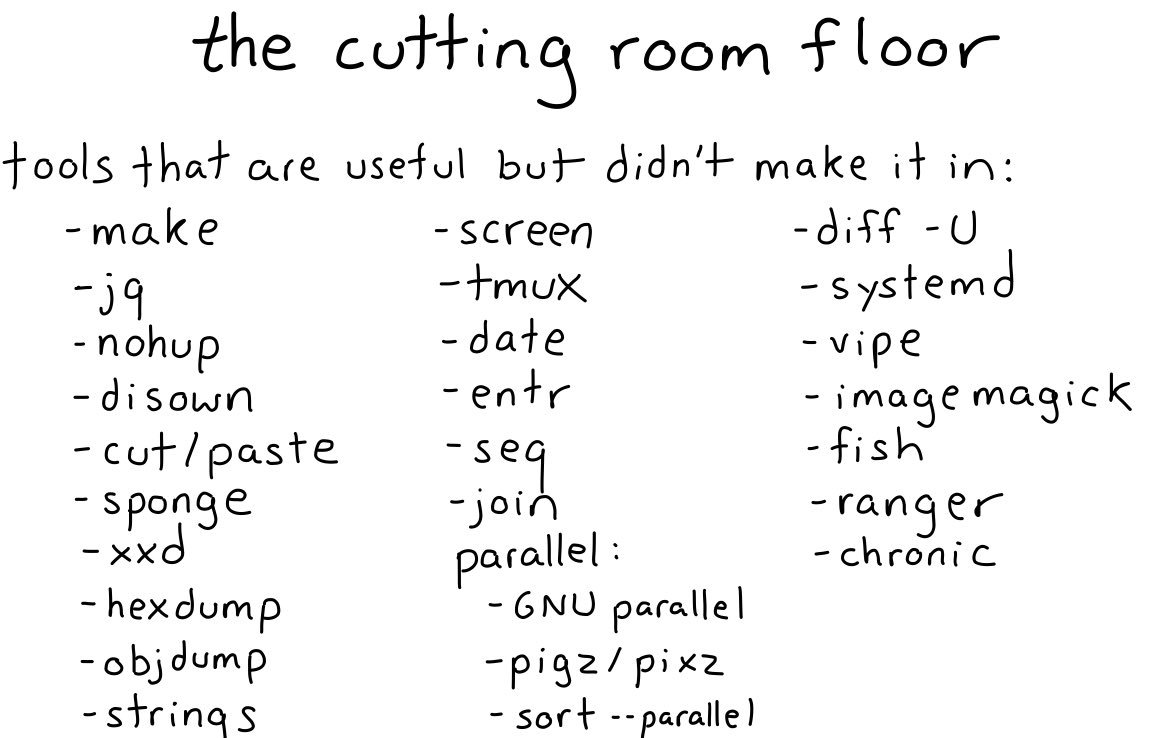 the cutting room floor
tools that are useful but didn't make it in:
-make
-jq
-nohup
-disown
-cut/paste
-sponge
-xxd
-hexdump
-objdump
-strings
-screen
-tmux
-date
-entr
-seq
-join
parallel:
-GNU parallel
-pigz/pixz
-sort --parallel
-diff -U
-systemd
-vipe
-imagemagick
-fish
-ranger
-chronic